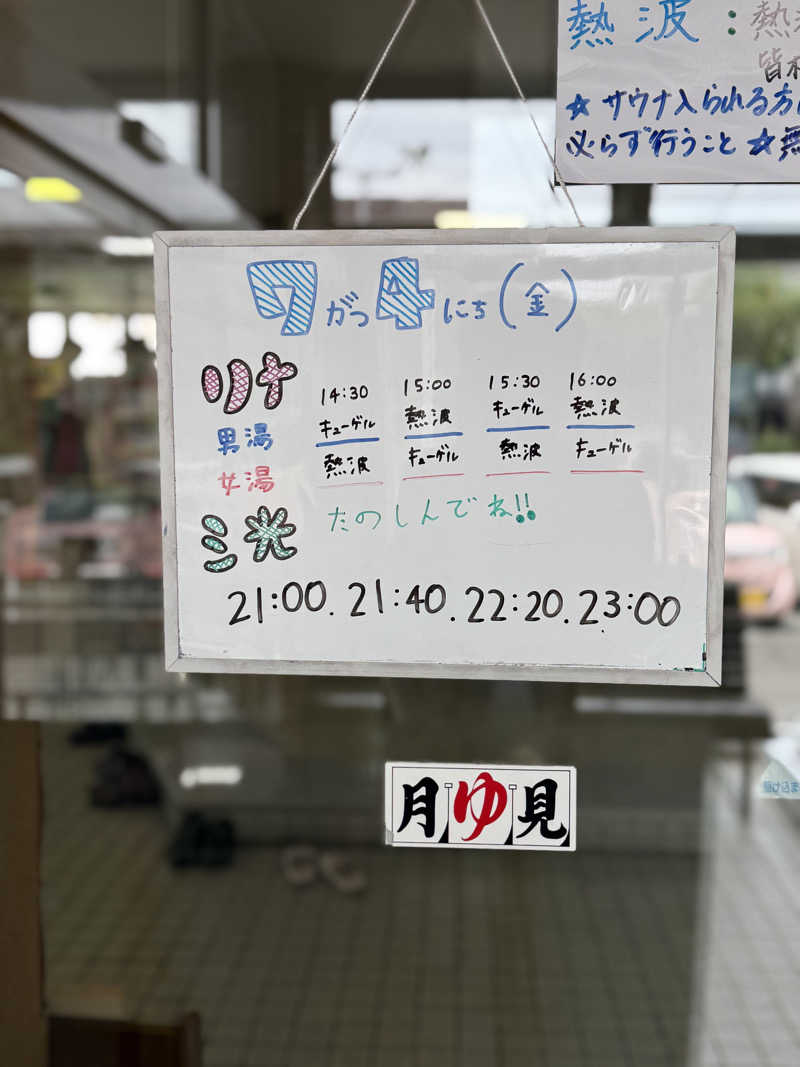 熱波：熱
☆サウナ入られる方
必らず行うこと☆無
7がつ4にち(金)
リナ
14:30 15:00 15:30 16:00
男湯 キューゲル 熱波 キューゲル 熱波
女湯 熱波 キューゲル 熱波 キューゲル
たのしんでね!!
三光
21:00. 21:40. 22:20. 23:00
月ゆ見